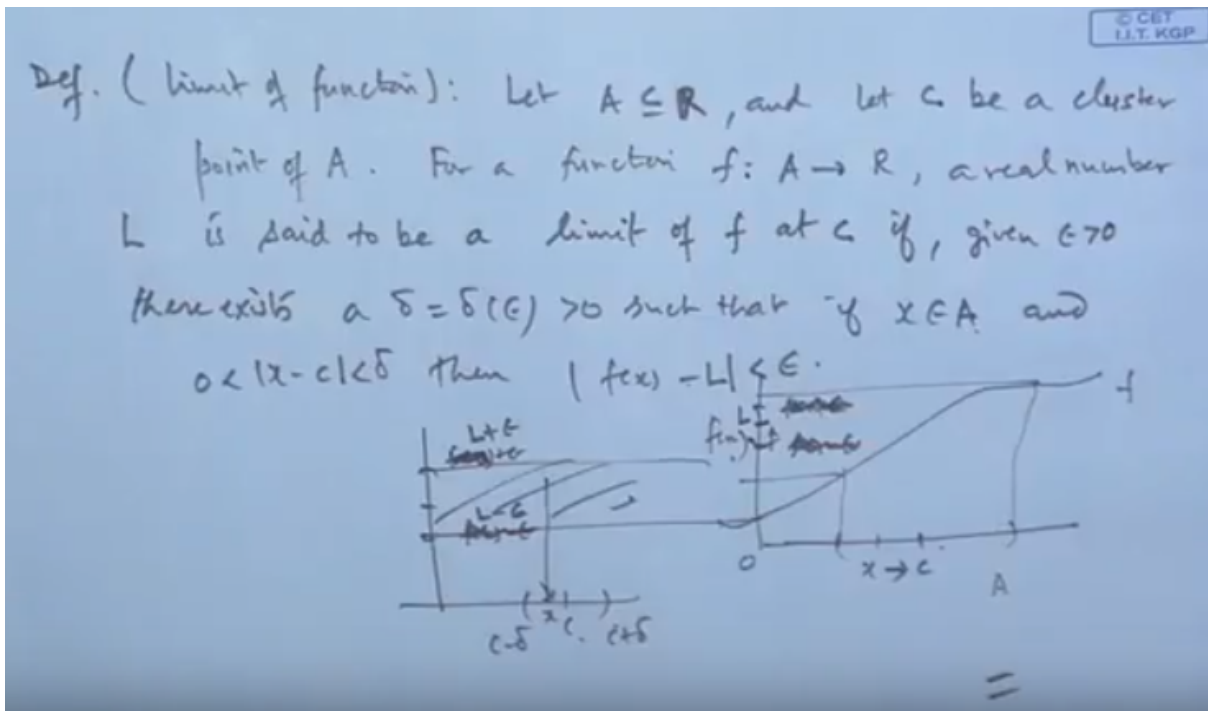 © CET
I.I.T. KGP
Def. ( limit of function): Let A ⊆ R, and let c be a cluster
point of A. For a function f: A → R, a real number
L is said to be a limit of f at c if, given ϵ>0
there exists a δ = δ(ϵ) >0 such that if x ∈ A and
0< |x-c|<δ then | f(x) - L| < ϵ.
f
L
f(x)
L+ϵ
L-ϵ
0
x → c
A
x c
c-δ c+δ